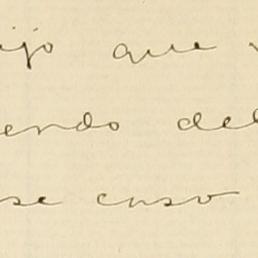 ijo que
endo del
se cuso